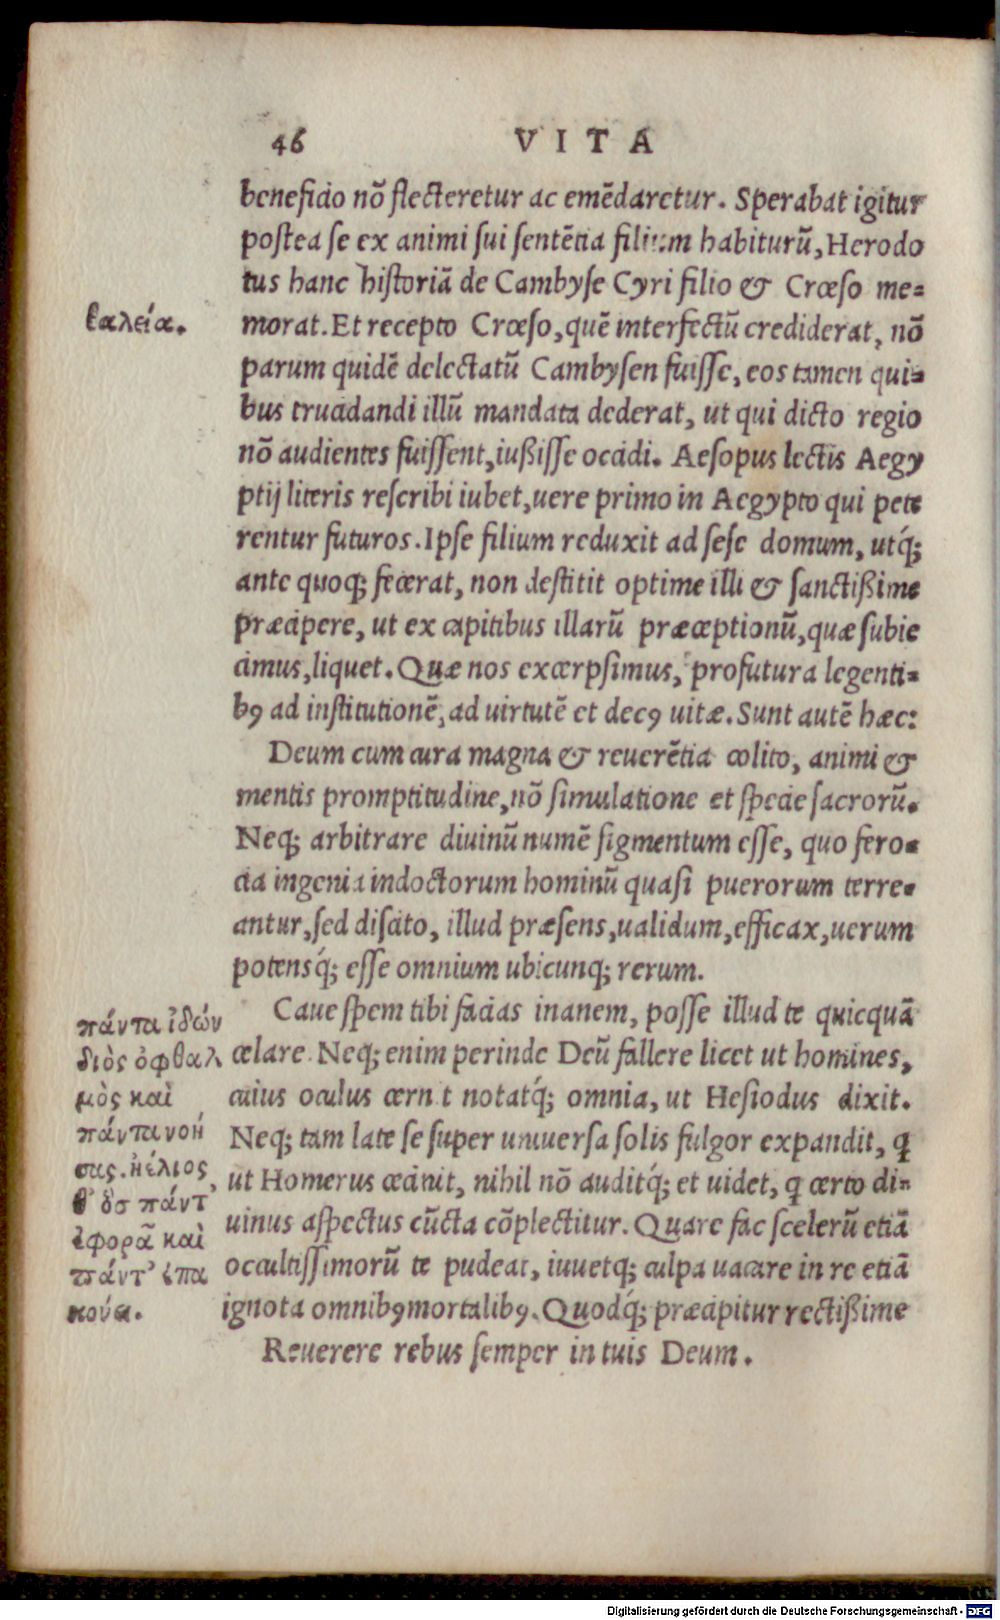 46 VITA
beneficio nõ flecteretur ac emẽdaretur. Sperabat igitur
postea se ex animi sui sentẽtia filium habiturũ, Herodo
tus hanc historiã de Cambyse Cyri filio & Crœso me=
θαλεία.
morat. Et recepto Crœso, quẽ interfectũ crediderat, nõ
parum quidẽ delectatũ Cambysen fuisse, eos tamen qui=
bus trucidandi illũ mandata dederat, ut qui dicto regio
nõ audientes fuissent, iußisse occidi. Aesopus lectis Aegy
ptij literis rescribi iubet, uere primo in Aegypto qui pete
rentur futuros. Ipse filium reduxit ad sese domum, utq́;
ante quoq; fecerat, non destitit optime illi & sanctißime
præcipere, ut ex capitibus illarũ præceptionũ, quæ subie
cimus, liquet. Quæ nos excerpsimus, profutura legenti=
bꝰ ad institutionẽ, ad uirtutẽ et decꝰ uitæ. Sunt autẽ hæc:
Deum cum cura magna & reuerẽtia colito, animi &
mentis promptitudine, nõ simulatione et specie sacrorũ.
Neq; arbitrare diuinũ numẽ figmentum esse, quo fero=
cia ingenia indoctorum hominũ quasi puerorum terre=
antur, sed discito, illud præsens, ualidum, efficax, uerum
potensq́; esse omnium ubicunq; rerum.
Caue spem tibi facias inanem, posse illud te quicquã
celare. Neq; enim perinde Deũ fallere licet ut homines,
cuius oculus cernit notatq́; omnia, ut Hesiodus dixit.
Neq; tam late se super uniuersa solis fulgor expandit, ꝗ
ut Homerus cecinit, nihil nõ auditq́; et uidet, ꝗ certo di=
uinus aspectus cũcta cõplectitur. Quare fac scelerũ etiã
occultissimorũ te pudeat, iuuetq; culpa uacare in re etiã
ignota omnibꝰ mortalibꝰ. Quodq́; præcipitur rectißime
Reuerere rebus semper in tuis Deum.
πάντα ἰδών
διὸς ὀφθαλ
μὸς καὶ
πάντα νοή
σας. ἠέλιος
θ' ὃσ πάντ'
ἐφορᾶ καὶ
πάντ' ἐπα
κούει.
Digitalisierung gefördert durch die Deutsche Forschungsgemeinschaft - DFG